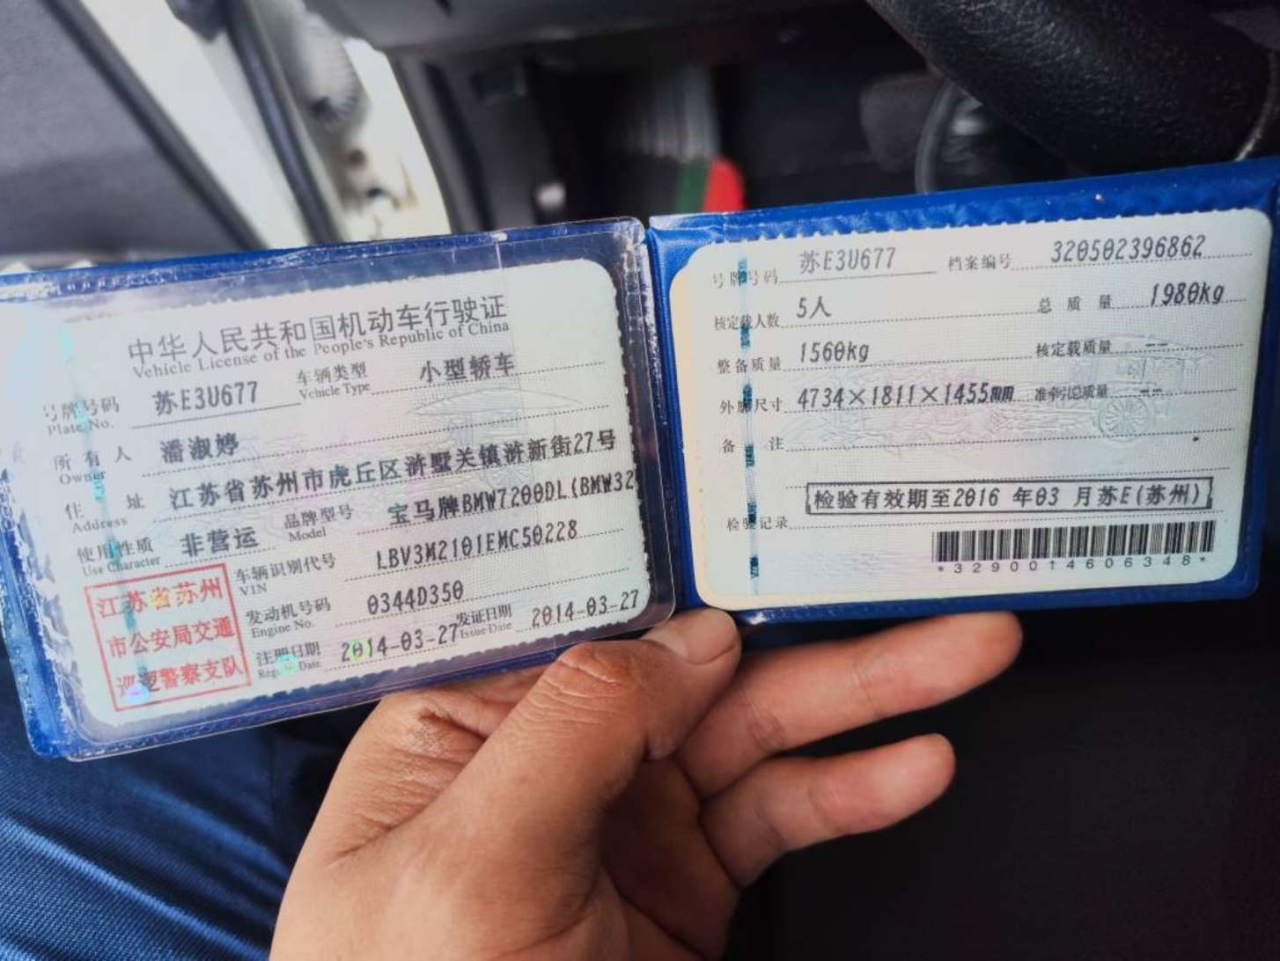 中华人民共和国机动车行驶证
Vehicle License of the People's Republic of China
号牌号码 苏E3U677 车辆类型 小型轿车
Plate No. Vehicle Type
所有人 潘淑婷
Owner
住址 江苏省苏州市虎丘区浒墅关镇浒新街27号
Address
使用性质 非营运 品牌型号 宝马牌BMW7200DL(BMW32
Use Character Model
江苏省苏州
市公安局交通
巡逻警察支队
车辆识别代号 LBV3M2101EMC50228
VIN
发动机号码 0344D350
Engine No.
注册日期 2014-03-27 发证日期 2014-03-27
Register Date Issue Date
号牌号码 苏E3U677 档案编号 320502396862
核定载人数 5人 总质量 1980kg
整备质量 1560kg 核定载质量 --
外廓尺寸 4734×1811×1455mm 准牵引总质量 --
备注
检验有效期至2016 年03 月苏E(苏州)
检验记录
*3290014606348*